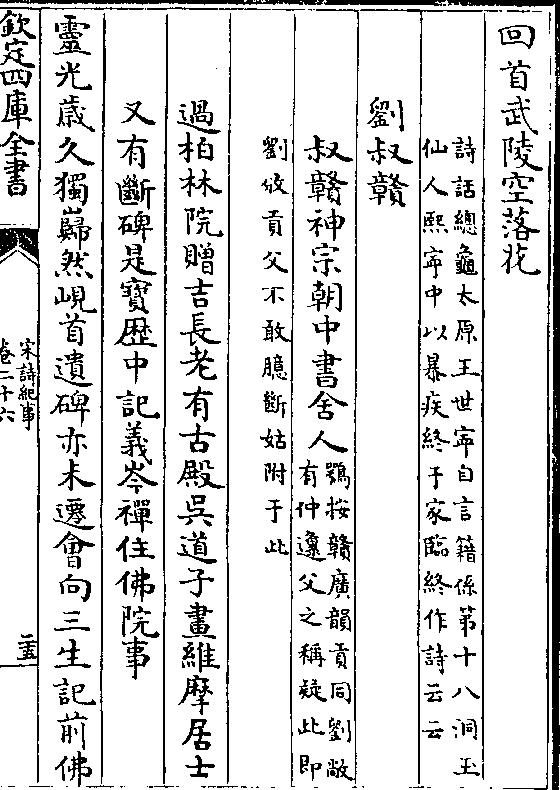 回首武陵空落花
詩話總龜太原王世寧自言籍係第十八洞玉
仙人熙寧中以暴疾終于家臨終作詩云云
劉叔贛
叔贛神宗朝中書舍人
鶚按贛廣韻貢同劉敞
有仲邍父之稱疑此即
劉攽貢父不敢臆斷姑附于此
過柏林院贈吉長老有古殿吳道子畫維摩居士
又有斷碑是寶歴中記義岑禪住佛院事
靈光歳久獨巋然峴首遺碑亦未遷會向三生記前佛
欽定四庫全書
宋詩紀事
卷二十六
二五